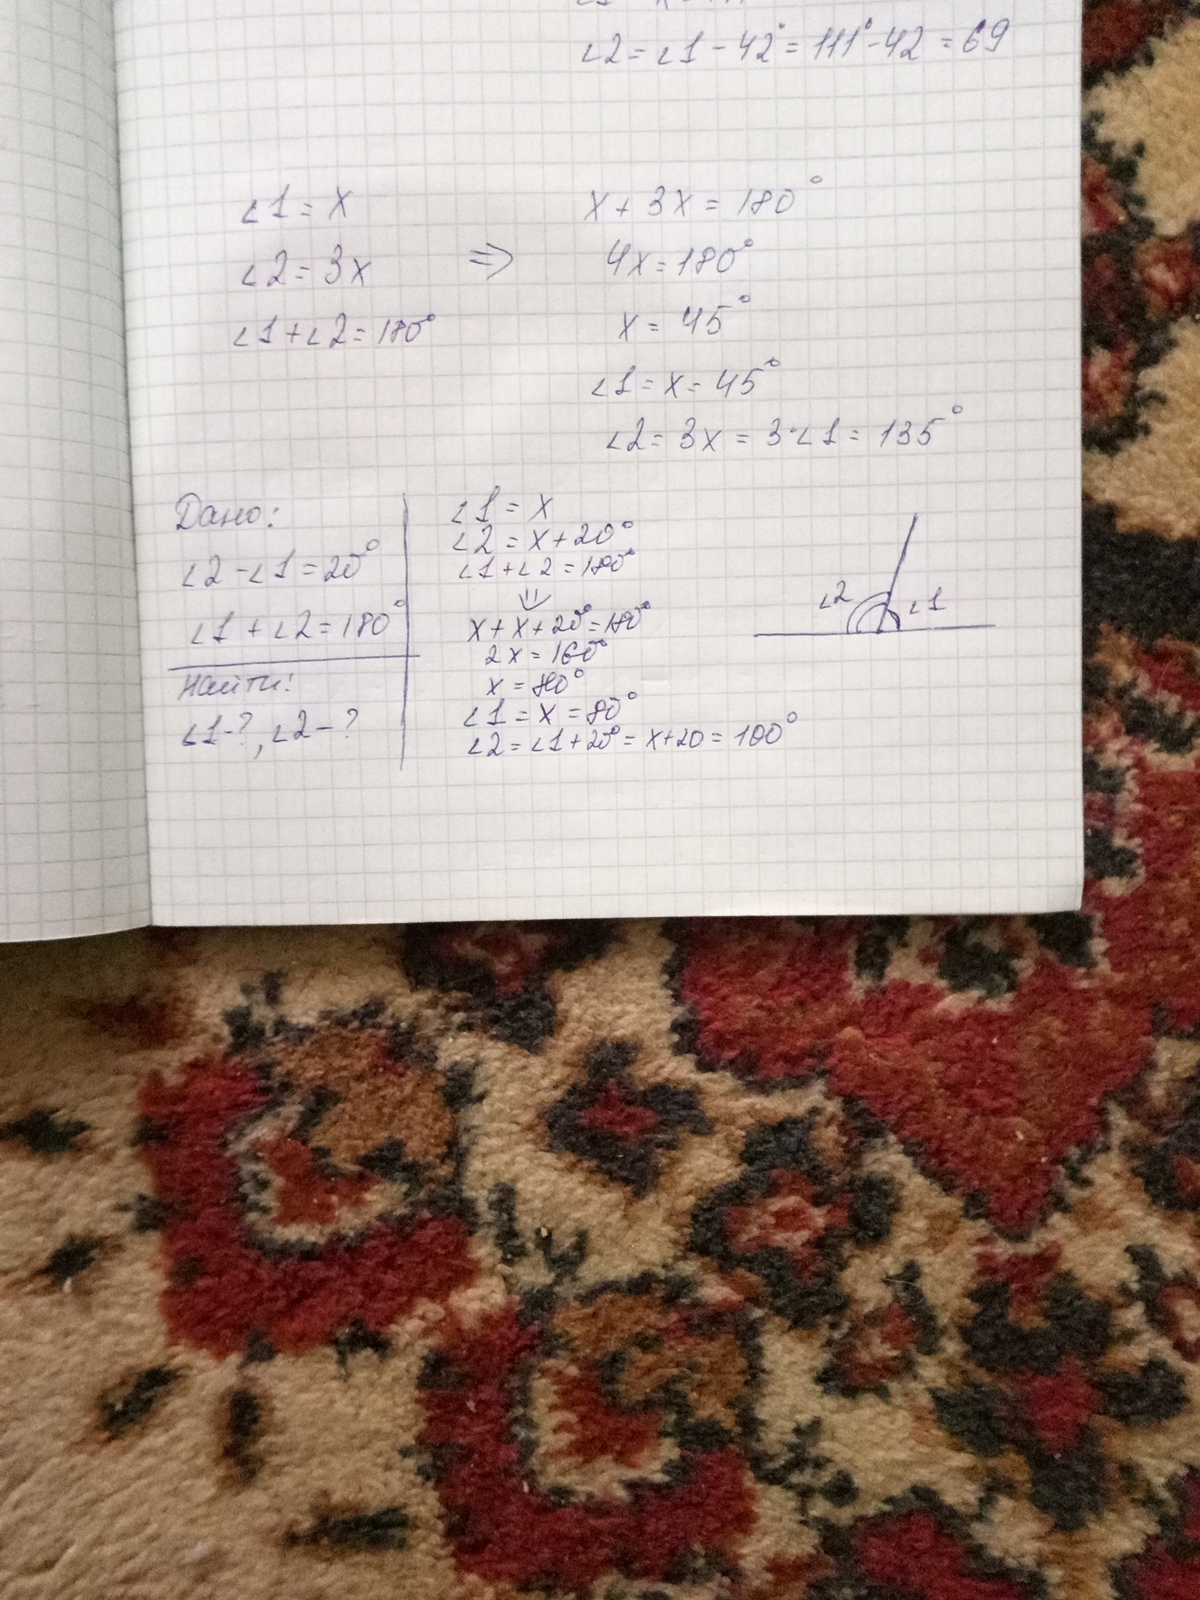 ∠2 = ∠1 - 42° = 111° - 42 = 69
∠1 = x
∠2 = 3x
∠1 + ∠2 = 180°
⇒
x + 3x = 180°
4x = 180°
x = 45°
∠1 = x = 45°
∠2 = 3x = 3·∠1 = 135°
Дано:
∠2 - ∠1 = 20°
∠1 + ∠2 = 180°
Найти:
∠1 - ?, ∠2 - ?
∠1 = x
∠2 = x + 20°
∠1 + ∠2 = 180°
⇓
x + x + 20° = 180°
2x = 160°
x = 80°
∠1 = x = 80°
∠2 = ∠1 + 20° = x + 20 = 100°
∠2 ∠1